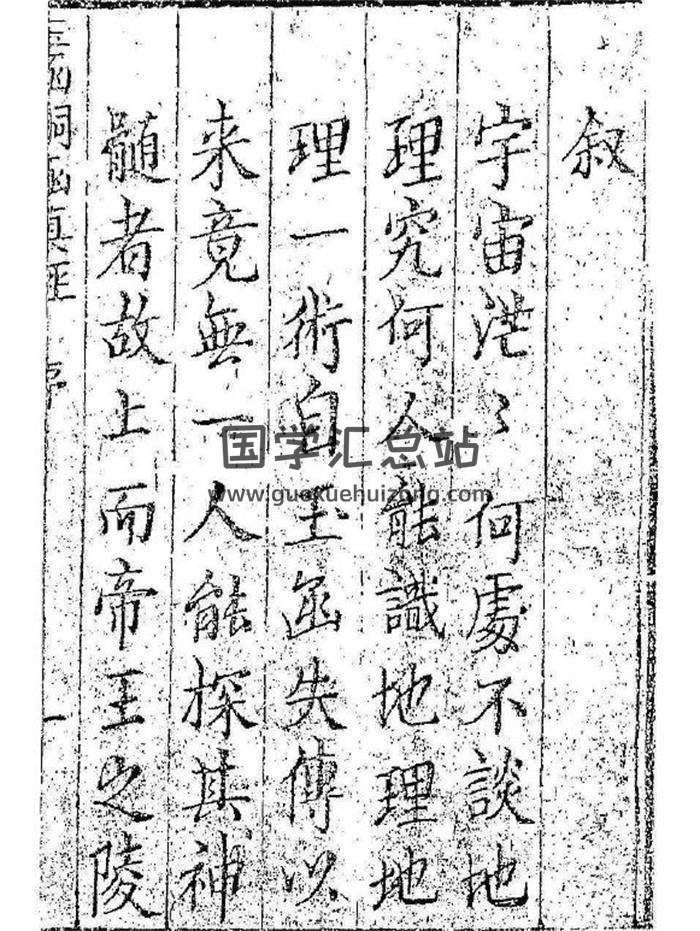 叙
宇宙茫〻何處不談地
理究何人能識地理地
理一術自玉函失傳以
来竟無一人能探其神
髓者故上而帝王之陵
一
国学汇总站
www.guoxuehuizong.com